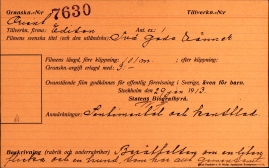 Granskn.-N:r 7630 Tillverkn.-N:r
Tillverkn. firma: Edison Ant. ex.: 1
Filmens svenska titel (och den utländska): Två goda vänner
Filmens längd, före klippning: m.; efter klippning:
Granskn.-avgift erlagd med
Ovanstående film godkännes för offentlig förevisning i Sverige, även för barn.
Stockholm den 29 1913
Statens Biografbyrå.
Anmärkningar: Sentimental och
Beskrivning (rubrik och underrubriker): Berättelsen om en liten
flicka och en hund, som